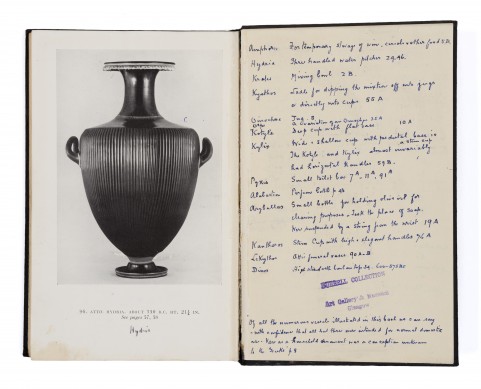 96. ATTIC HYDRIA. ABOUT 350 B.C. HT. 21¼ IN.
See pages 57, 59
Hydria
Amphora For temporary storage of wine, cereals & other food
Hydria Three handled water pitcher
Krater Mixing bowl 2B.
Kyathos Ladle for dipping the mixture off into jugs
or directly into cups 55A
Oinochoe Jug.
Kotyle Deep cup with flat base 10A
Kylix Wide & shallow cup with pedestal base
The Kotyle and Kylix almost invariably
had horizontal handles 59B.
Pyxis Small toilet box 7A, 11A, 91A
Alabastron Perfume bottle
Aryballos Small bottle for holding olive oil for
cleaning purposes - took the place of soap.
Was suspended by a string from the wrist 19A
Kantharos Stem Cup with high & elegant handles
Lekythos Attic funeral vase
Dinos
BURRELL COLLECTION
Art Gallery & Museum
Glasgow
Of all the numerous vessels illustrated in this book we can say
with confidence that all but three were intended for normal domestic
use. Vase as a household ornament was a conception unknown
to the Greeks